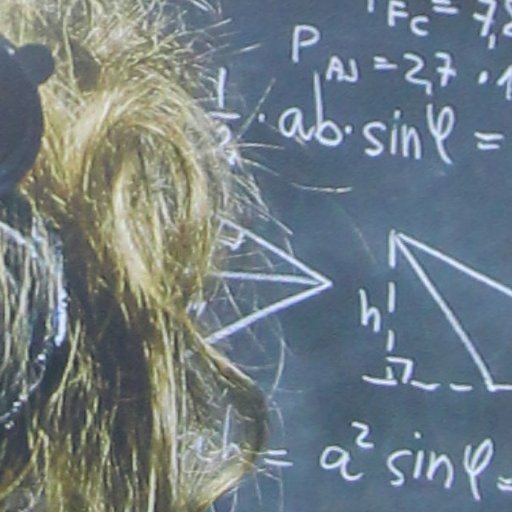 F_FC = 7,8
P_AJ = 2,7 · 1
1/2 · ab · sin φ =
h
ah = a² sin φ =